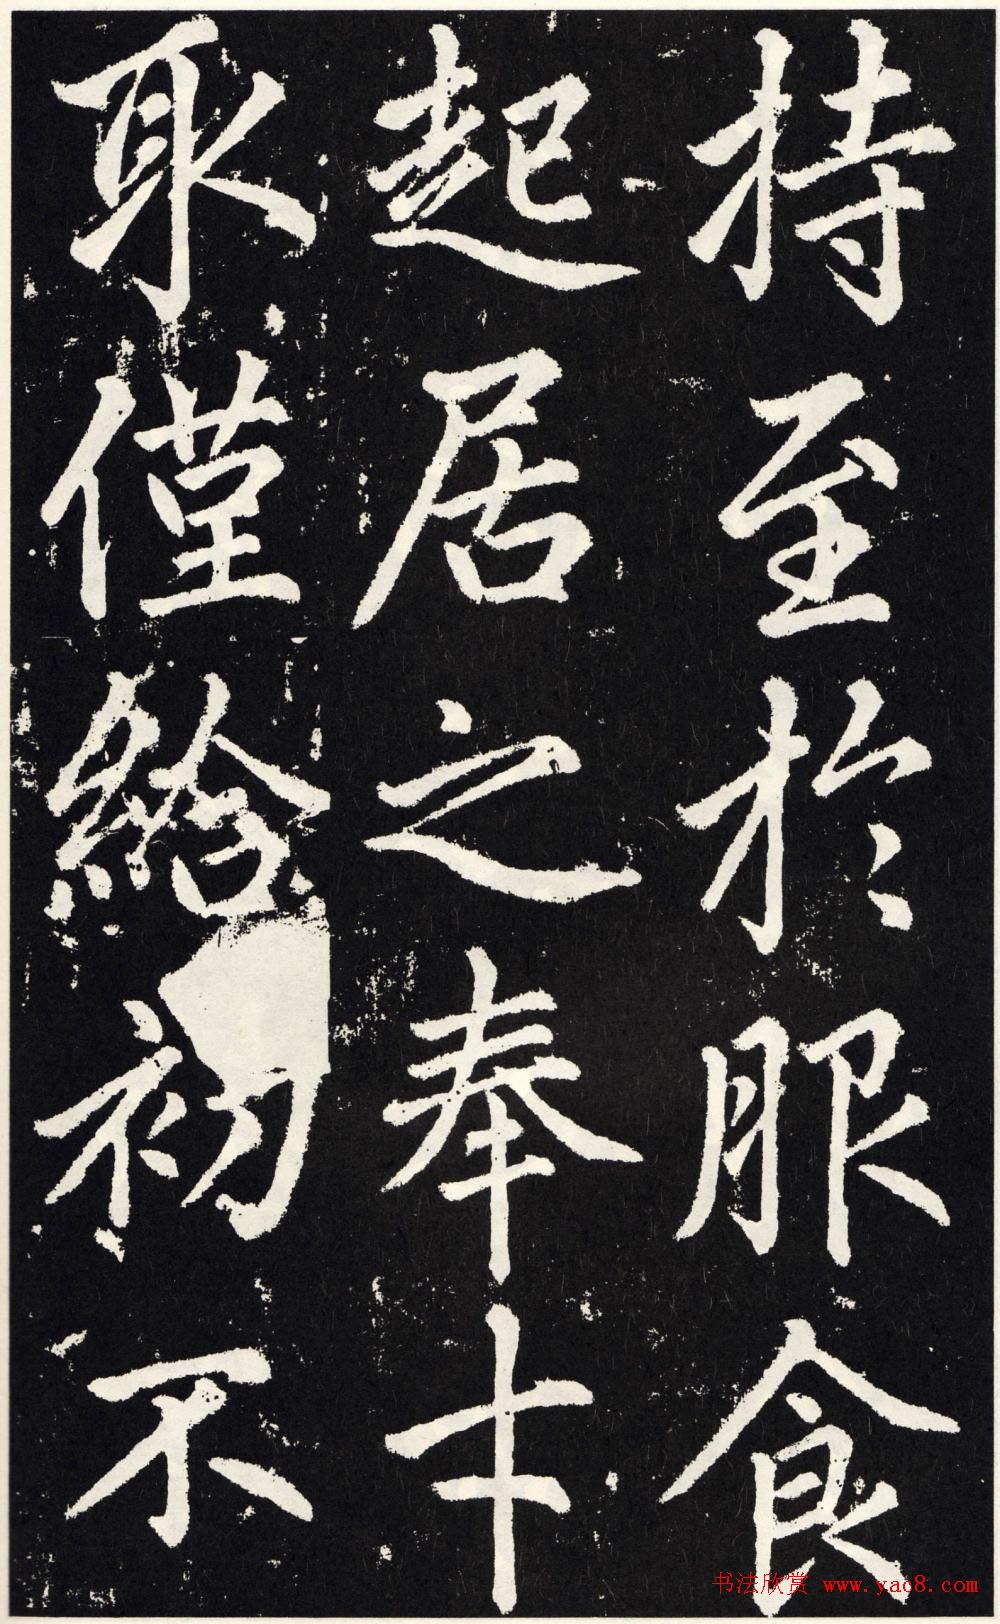 持至於服食
起居之奉才
取僅給初不
书法欣赏 www.yac8.com